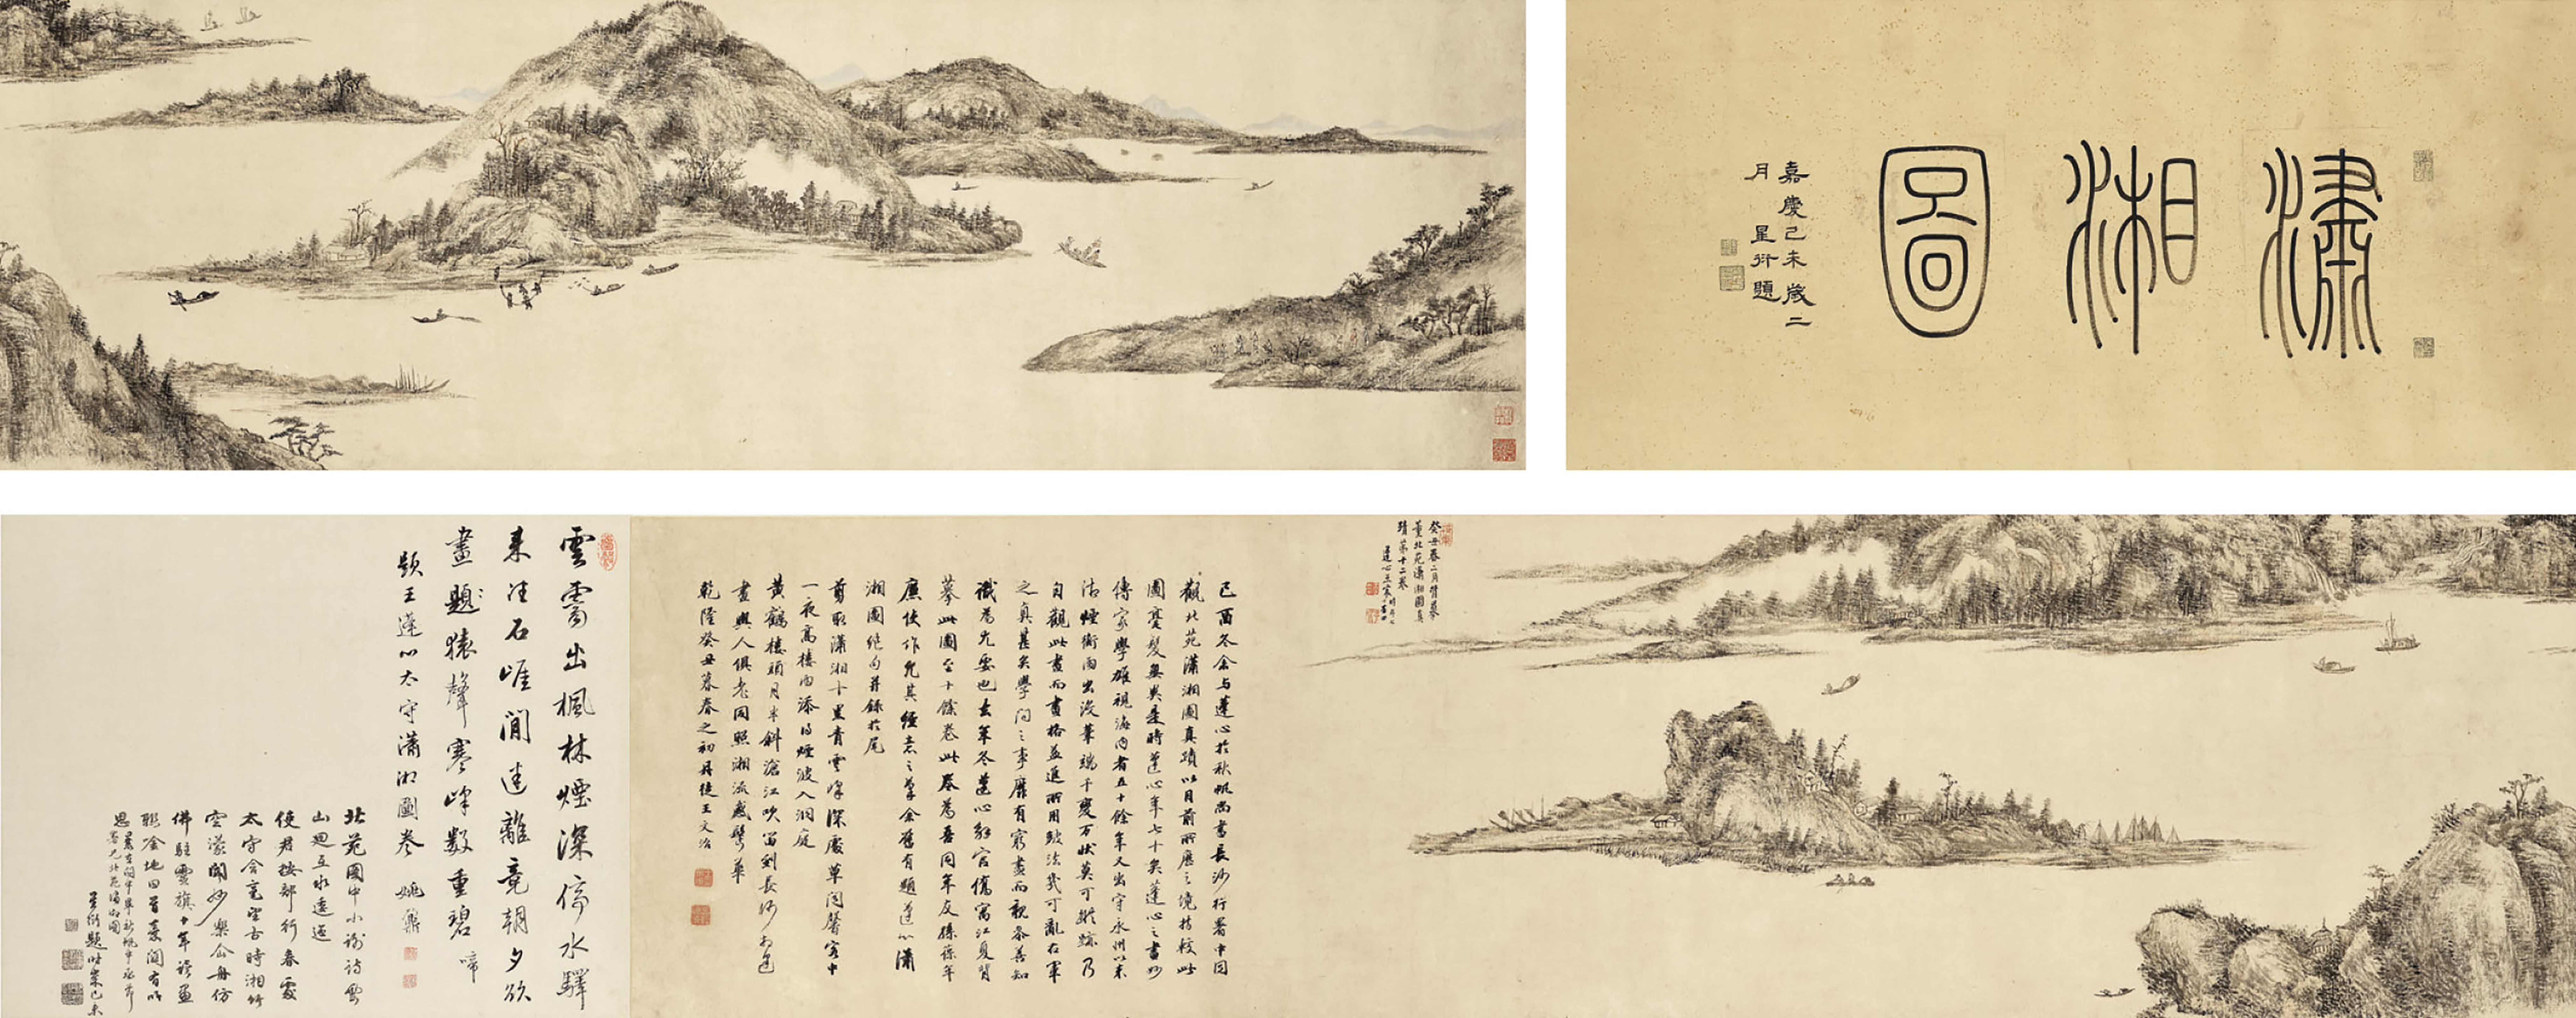 瀟湘圖
嘉慶己未歲二
月 星衍題
癸丑春二月背摹
董北苑瀟湘圖真
蹟第十二卷
蓬心王宸
己酉冬余與蓬心於秋帆尚書長沙行署中同
觀北苑瀟湘圖真蹟以目前所歷之境持較此
圖毫髮無異是時蓬心年七十矣蓬心之畫妙
傳家學雄視海內者五十餘年又出守永州以來
沽煙衝雨出沒筆端千變万狀莫可蹤跡乃
自觀此畫而畫格益進所用皴法幾可亂右軍
之真甚矣學問之事靡有窮盡而親參善知
識為尤要也去年冬蓬心解官僑寓江夏背
摹此圖至十餘卷此卷為吾同年友孫葆年
廉使作尤其經意之筆余舊有題蓬心瀟
湘圖絕句并錄於尾
剪取瀟湘十里青雲峰深處草閣馨客中
一夜高樓雨添得煙波入洞庭
黃鶴樓頭月半斜滄江吹笛到長沙
畫與人俱老同照湘流感鬢華
乾隆癸丑暮春之初丹徒王文治
雲霱出楓林煙深停水驛
來往石崖間迷離竟朝夕欲
畫題猿聲寒峰數重碧 啼
題王蓬心太守瀟湘圖卷 姚鼐
北苑圖中小謝詩雲
山迴互水逶迤
使君按部行春處
太守含毫望古時湘竹
空濛聞妙樂仙舟仿
佛駐靈旗十年讀畫
思
星衍題時嘉慶己未